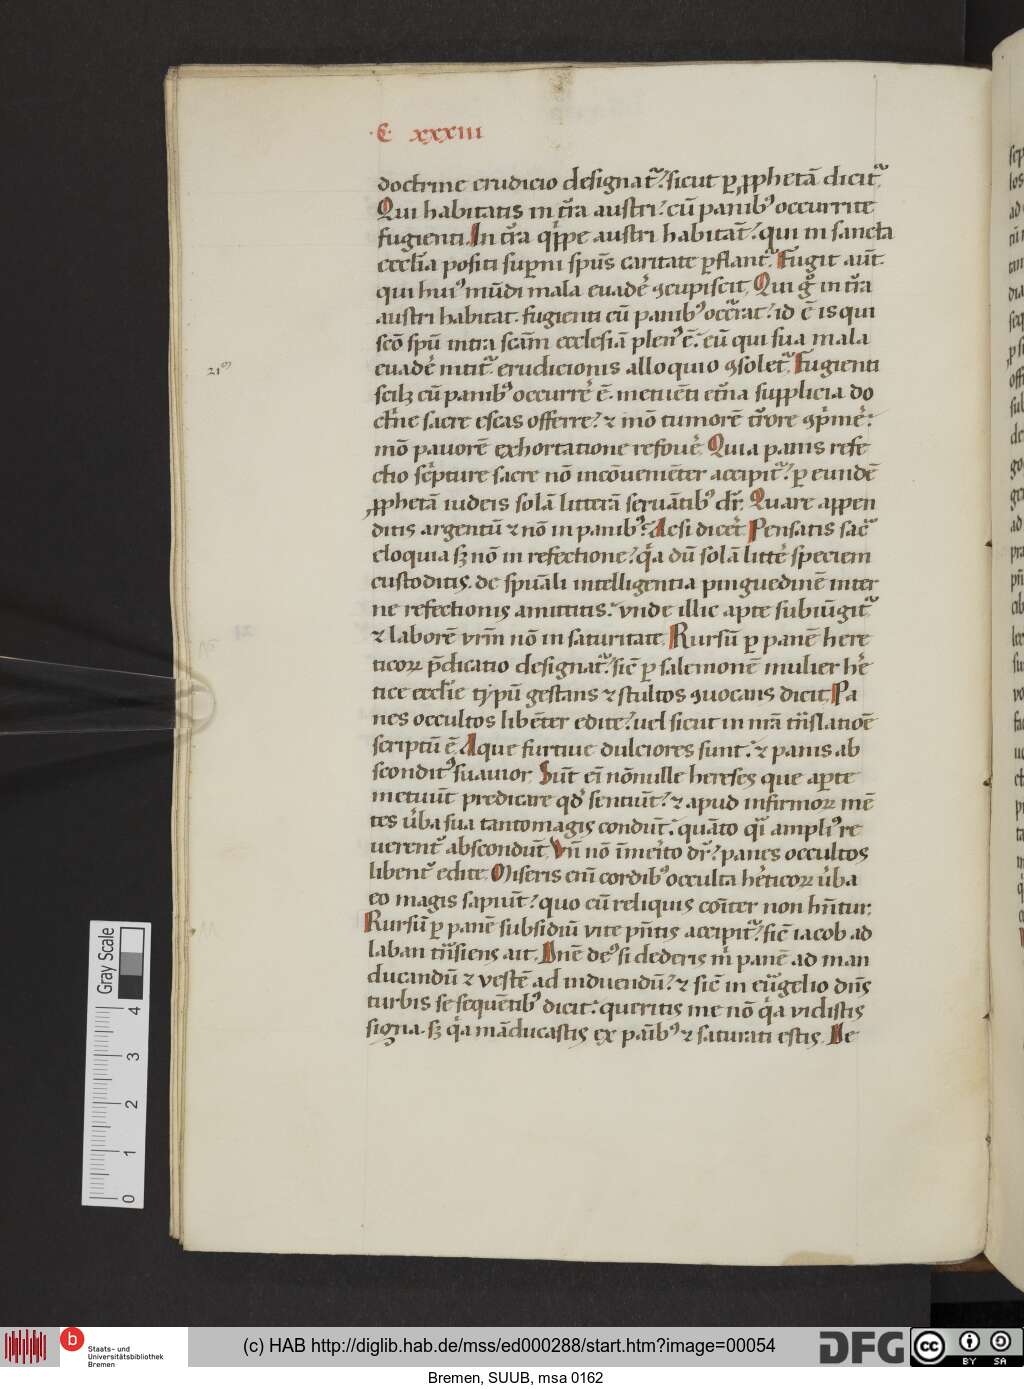 ·C· xxxiii
doctrine erudicio designat᷑. sicut ꝑ ꝓphetā dicit᷑
Qui habitatis in t̄ra austri. cū panibꝰ occurrite
fugienti. In t̄ra q̄ppe austri habitāt. qui in sancta
ecclīa positi suꝑni spūs caritate ꝑflant᷑. Fugit aūt
qui huiꝰ mūdi mala euadē ꝯcupiscit. Qui gͦ in t̄ra
austri habitat. fugienti cū panibꝰ occ̄rat. id ē is qui
scō spū intra scām ecclesiā plenꝰ ē. eū qui sua mala
euadē nitit᷑. erudicionis alloquio ꝯsolet᷑. Fugienti
21
scilꝫ cū panibꝰ occurrē ē. metuēti et̄na supplicia do
ct̄ne sacre escas offerre. ⁊ mō tumorē t̄rore ꝯp̄mē.
mō pauorē exhortatione refouē. Quia panis refe
ctio sc̄pture sacre nō incōuenienter accipit᷑. ꝑ eundē
ꝓphetā iudeis solā litterā seruātibꝰ dr̄. Quare appen
ditis argentū ⁊ nō in panibꝰ. Ac si dicer̄. Pensatis sac̄
eloquia sꝫ nō in refectione. q̄a dū solā litt̄e speciem
custoditis. de spūali intelligentia pinguedinē inter
ne refectionis amittitis. vnde illic apte subiūgit᷑
⁊ laborē vr̄m nō in saturitate. Rursū ꝑ panē here
ticoꝝ p̄dicatio designat᷑. sic̄ ꝑ salemonē mulier hē
tice eccl̄ie typū gestans ⁊ stultos ꝯuocans dicit. Pa
nes occultos libēter edite. uel sicut in nr̄a tn̄slatiōe
scriptū ē. Aque furtiue dulciores sunt. ⁊ panis ab
sconditꝰ suauior. Sūt eī nōnulle hereses que aꝑte
metuūt predicare qd̄ sentiūt. ⁊ apud infirmoꝝ mē
tes ūba sua tantomagis condūt. quāto q̄i ampliꝰ re
uerent᷑ abscondūt. Vn̄ nō īmerito dr̄. panes occultos
libent᷑ edite. Miseris enī cordibꝰ occulta hēticoꝝ ūba
eo magis sapiūt. quo cū reliquis cōiter non hn̄tur.
Rursū ꝑ panē subsidiū vite pn̄tis accipit᷑. sic̄ iacob ad
laban tn̄siens ait. Dn̄e deꝰ si dederis m̄ panē ad man
ducandū ⁊ vestē ad induendū. ⁊ sic̄ in eūgelio dn̄s
turbis se sequētibꝰ dicit. queritis me nō q̄a vidistis
signa. sꝫ q̄a māducastis ex panibꝰ ⁊ saturati estis. De
Gray Scale
4
3
2
1
0
b
Staats- und
Universitätsbibliothek
Bremen
(c) HAB http://diglib.hab.de/mss/ed000288/start.htm?image=00054
DFG
cc
BY SA
Bremen, SUUB, msa 0162